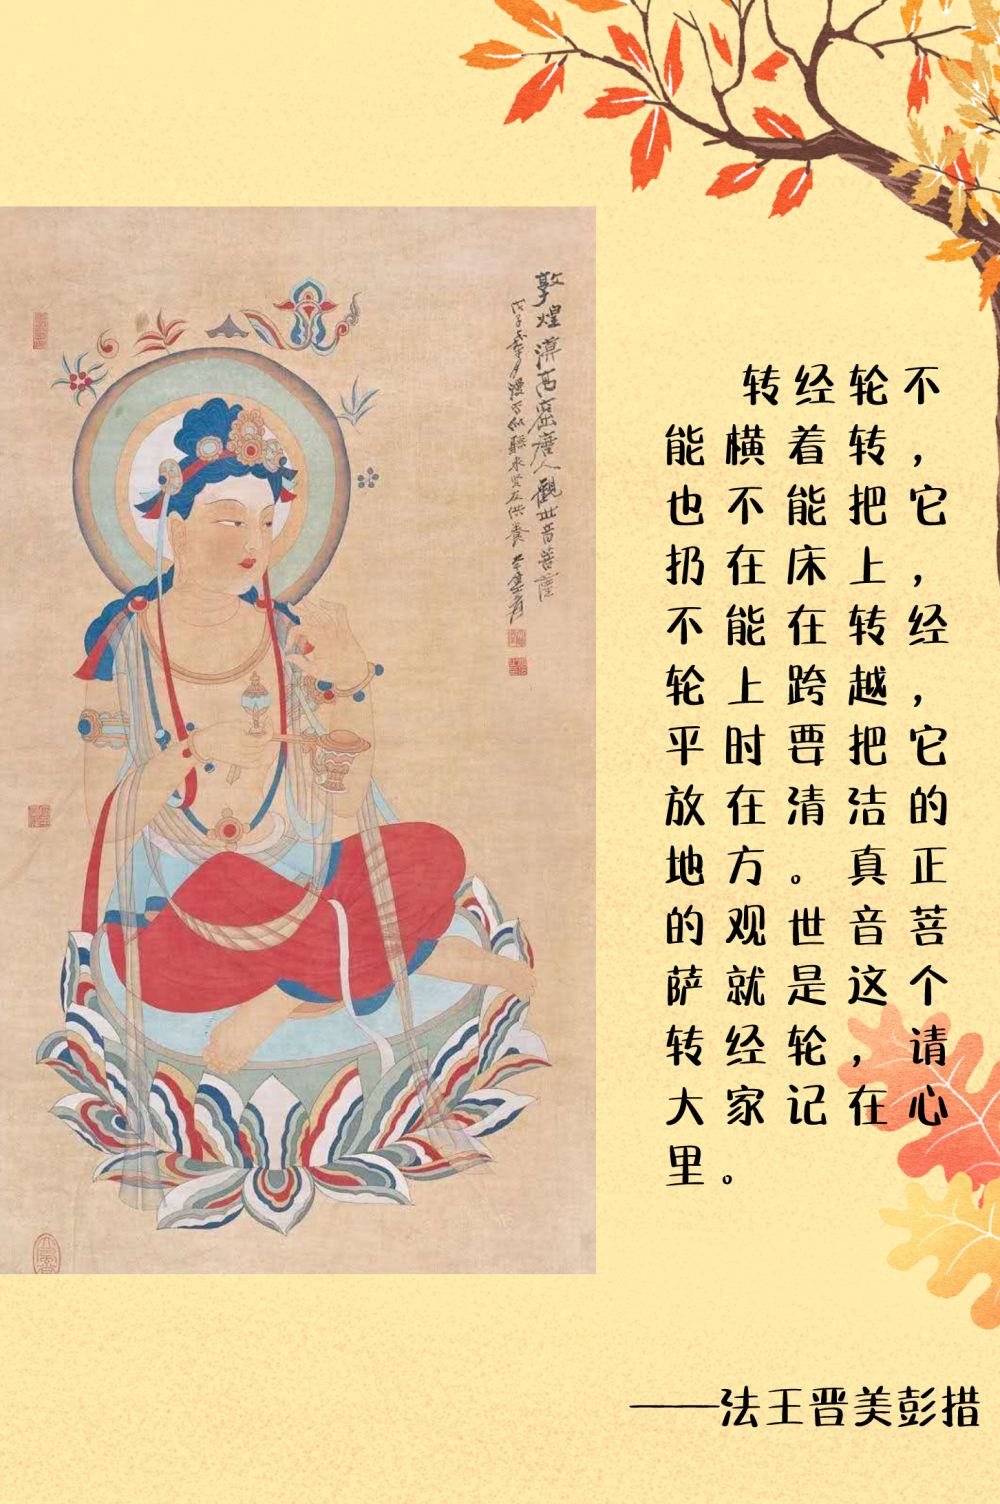 敦煌漠高窟唐人觀世音菩薩
转经轮不
能横着转，
也不能把它
扔在床上，
不能在转经
轮上跨越，
平时要把它
放在清洁的
地方。真正
的观世音菩
萨就是这个
转经轮，请
大家记在心
里。
——法王晋美彭措